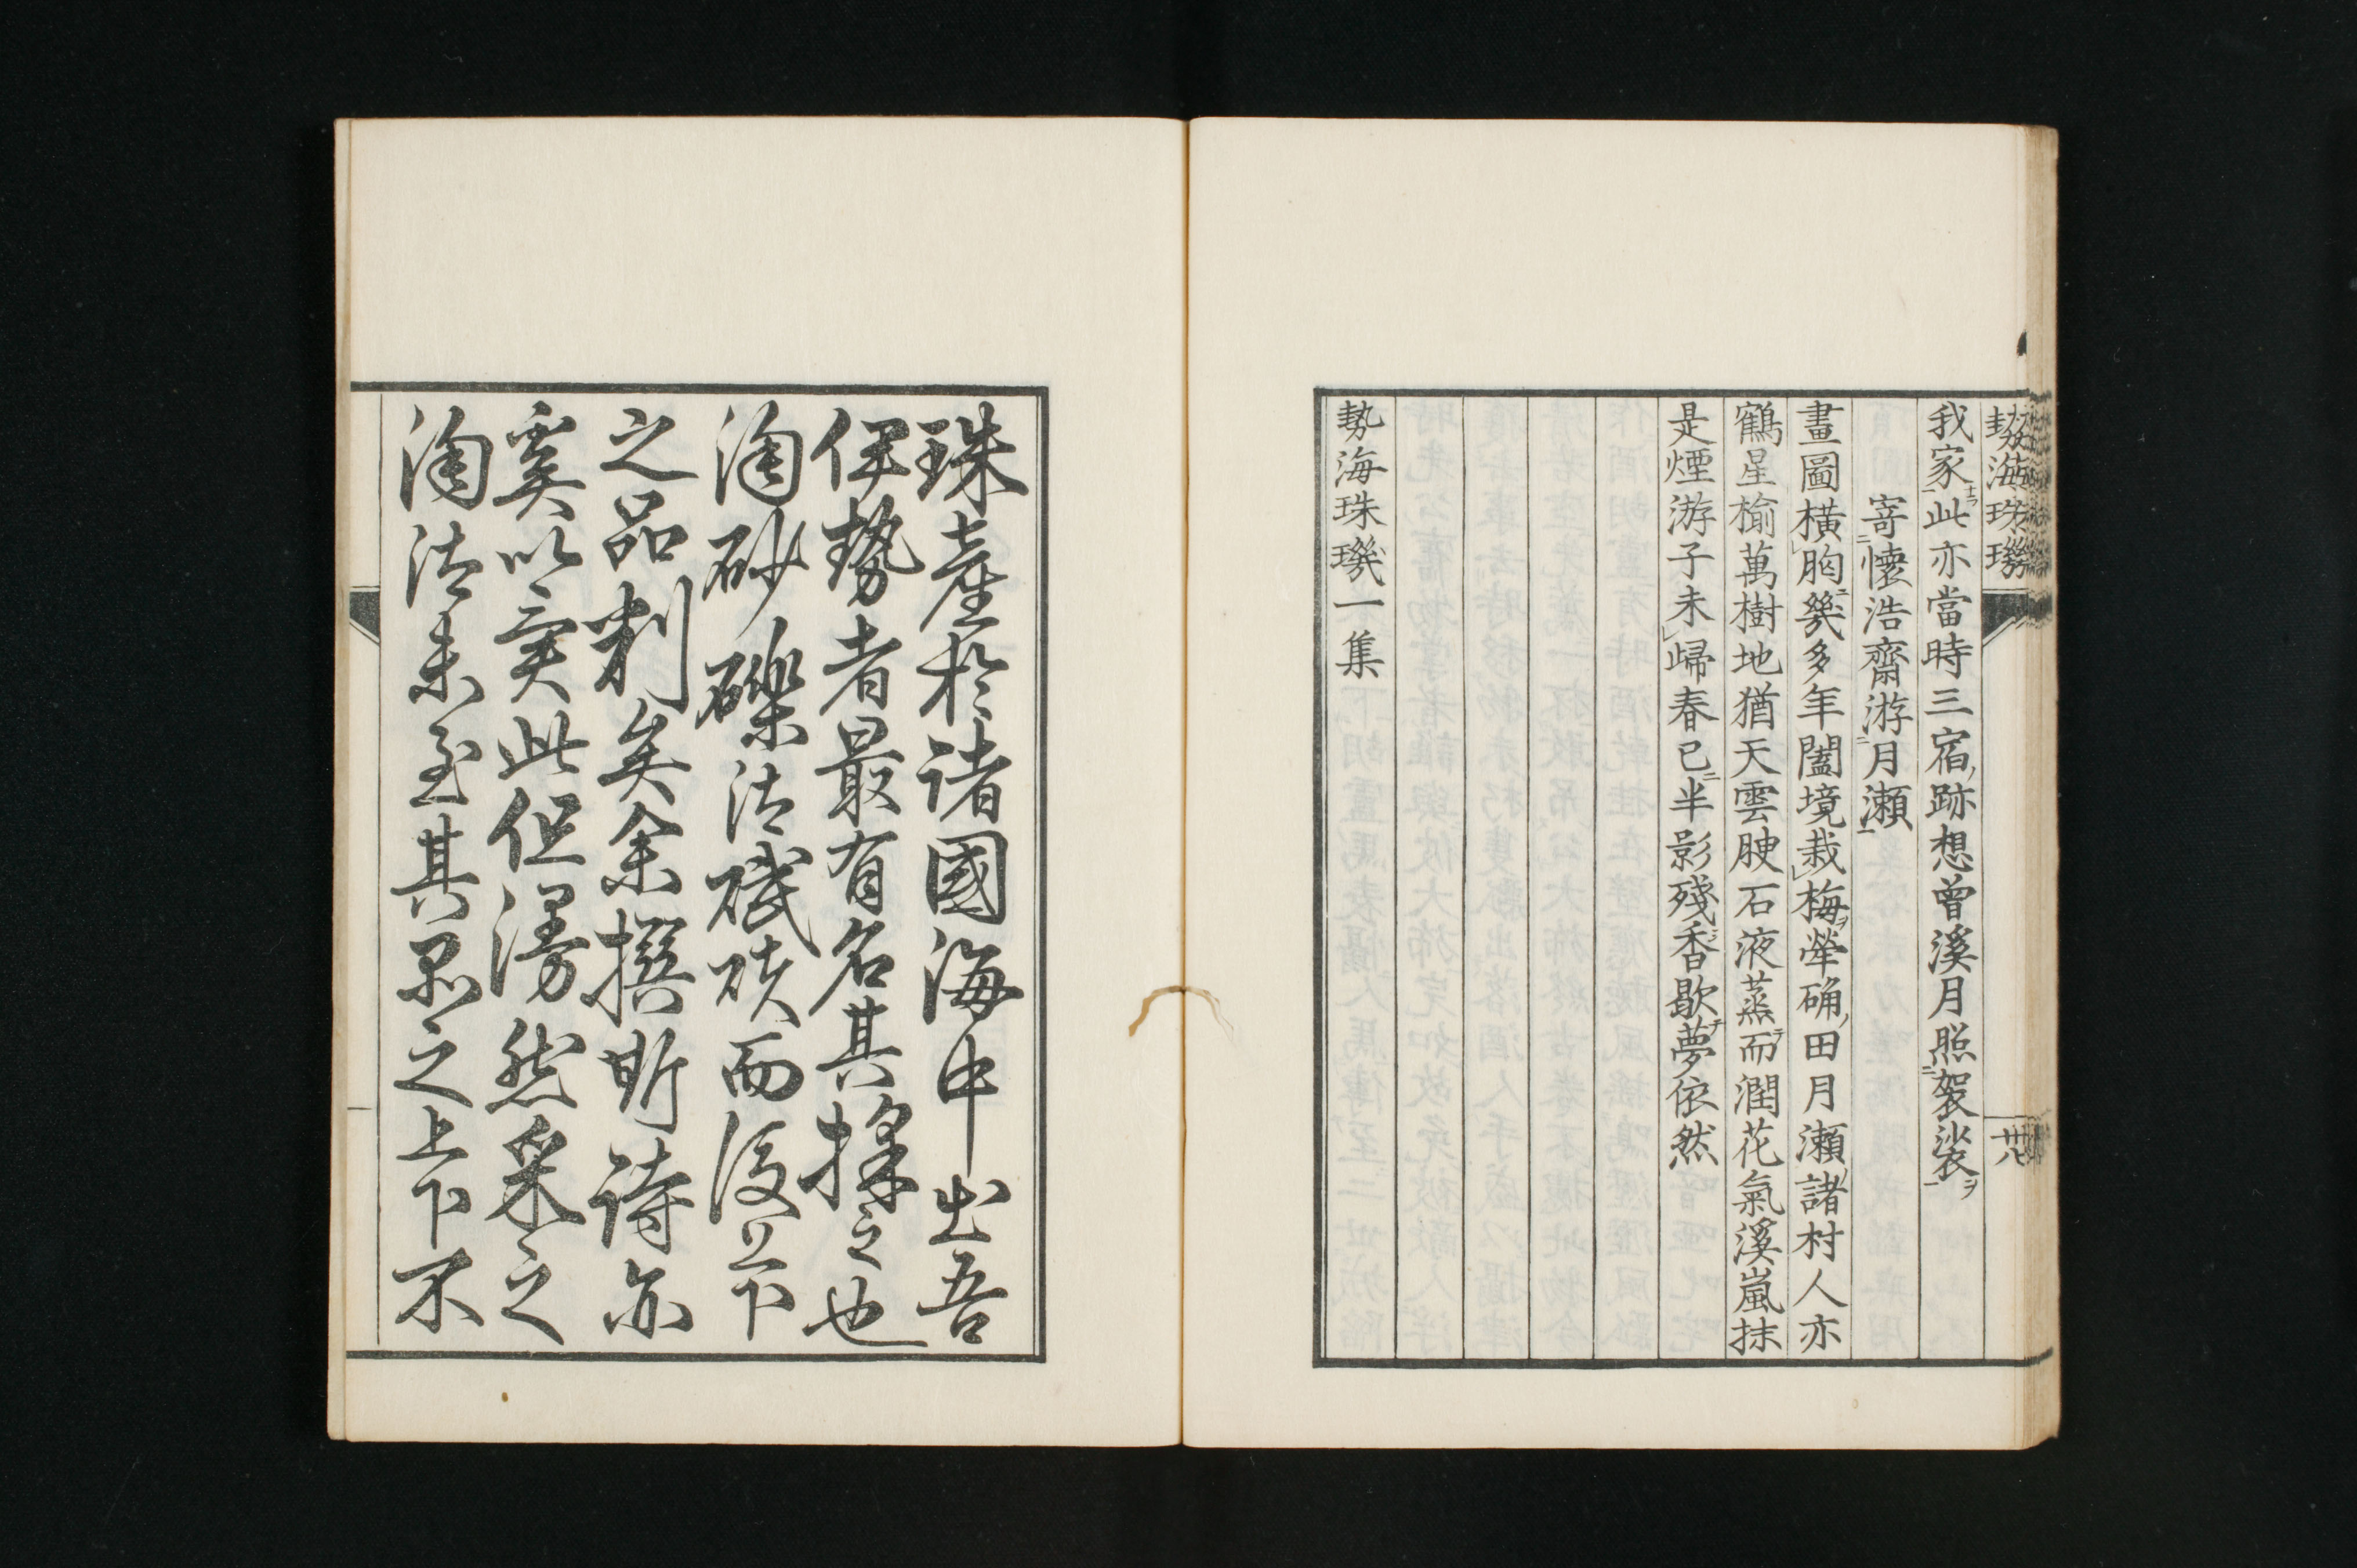 勢海珠璣
卅八
我家此亦當時三宿跡想曾溪月照袈裟
寄懷浩齋游月瀬
畫圖橫胸幾多年闔境栽梅犖确田月瀬諸村人亦
鶴星榆萬樹地猶天雲腴石液蒸而潤花氣溪嵐抹
是煙游子未歸春已半影殘香歇夢依然
勢海珠璣一集
珠産於諸國海中出吾
伊勢者最有名其採之也
淘砂礫法磯碊而後上下
之品判矣余撰斯詩亦
奚以異此但漫然采之
淘法未至其品之上下不